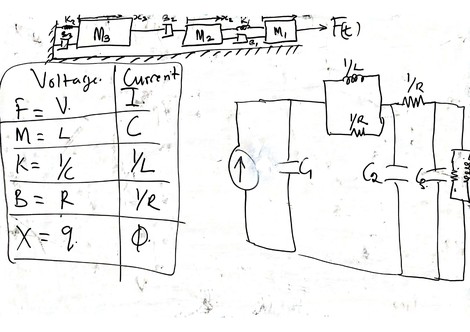 K₂ x₃ B₂ x₂ K₁
M₃ M₂ M₁ → F(t)
B₃ B₁
Voltage. Current
F = V. I.
M = L C
K = 1/C 1/L
B = R 1/R
X = q. φ
1/L 1/R
1/R
↑ C₁ C₂ C₃